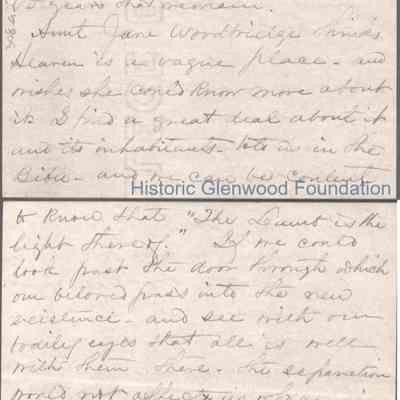 years that remain.
Aunt Jane Woodbridge thinks
Heaven is a vague place - and
wishes she could know more about
it. I find a great deal about it
and its inhabitants told us in the
Bible - and we can be content
Historic Glenwood Foundation
to know that "The Lamb is the
light thereof." If we could
look past the door through which
our beloved pass into the new
existence - and see with our
bodily eyes that all is well
with them there - the separation
would not us